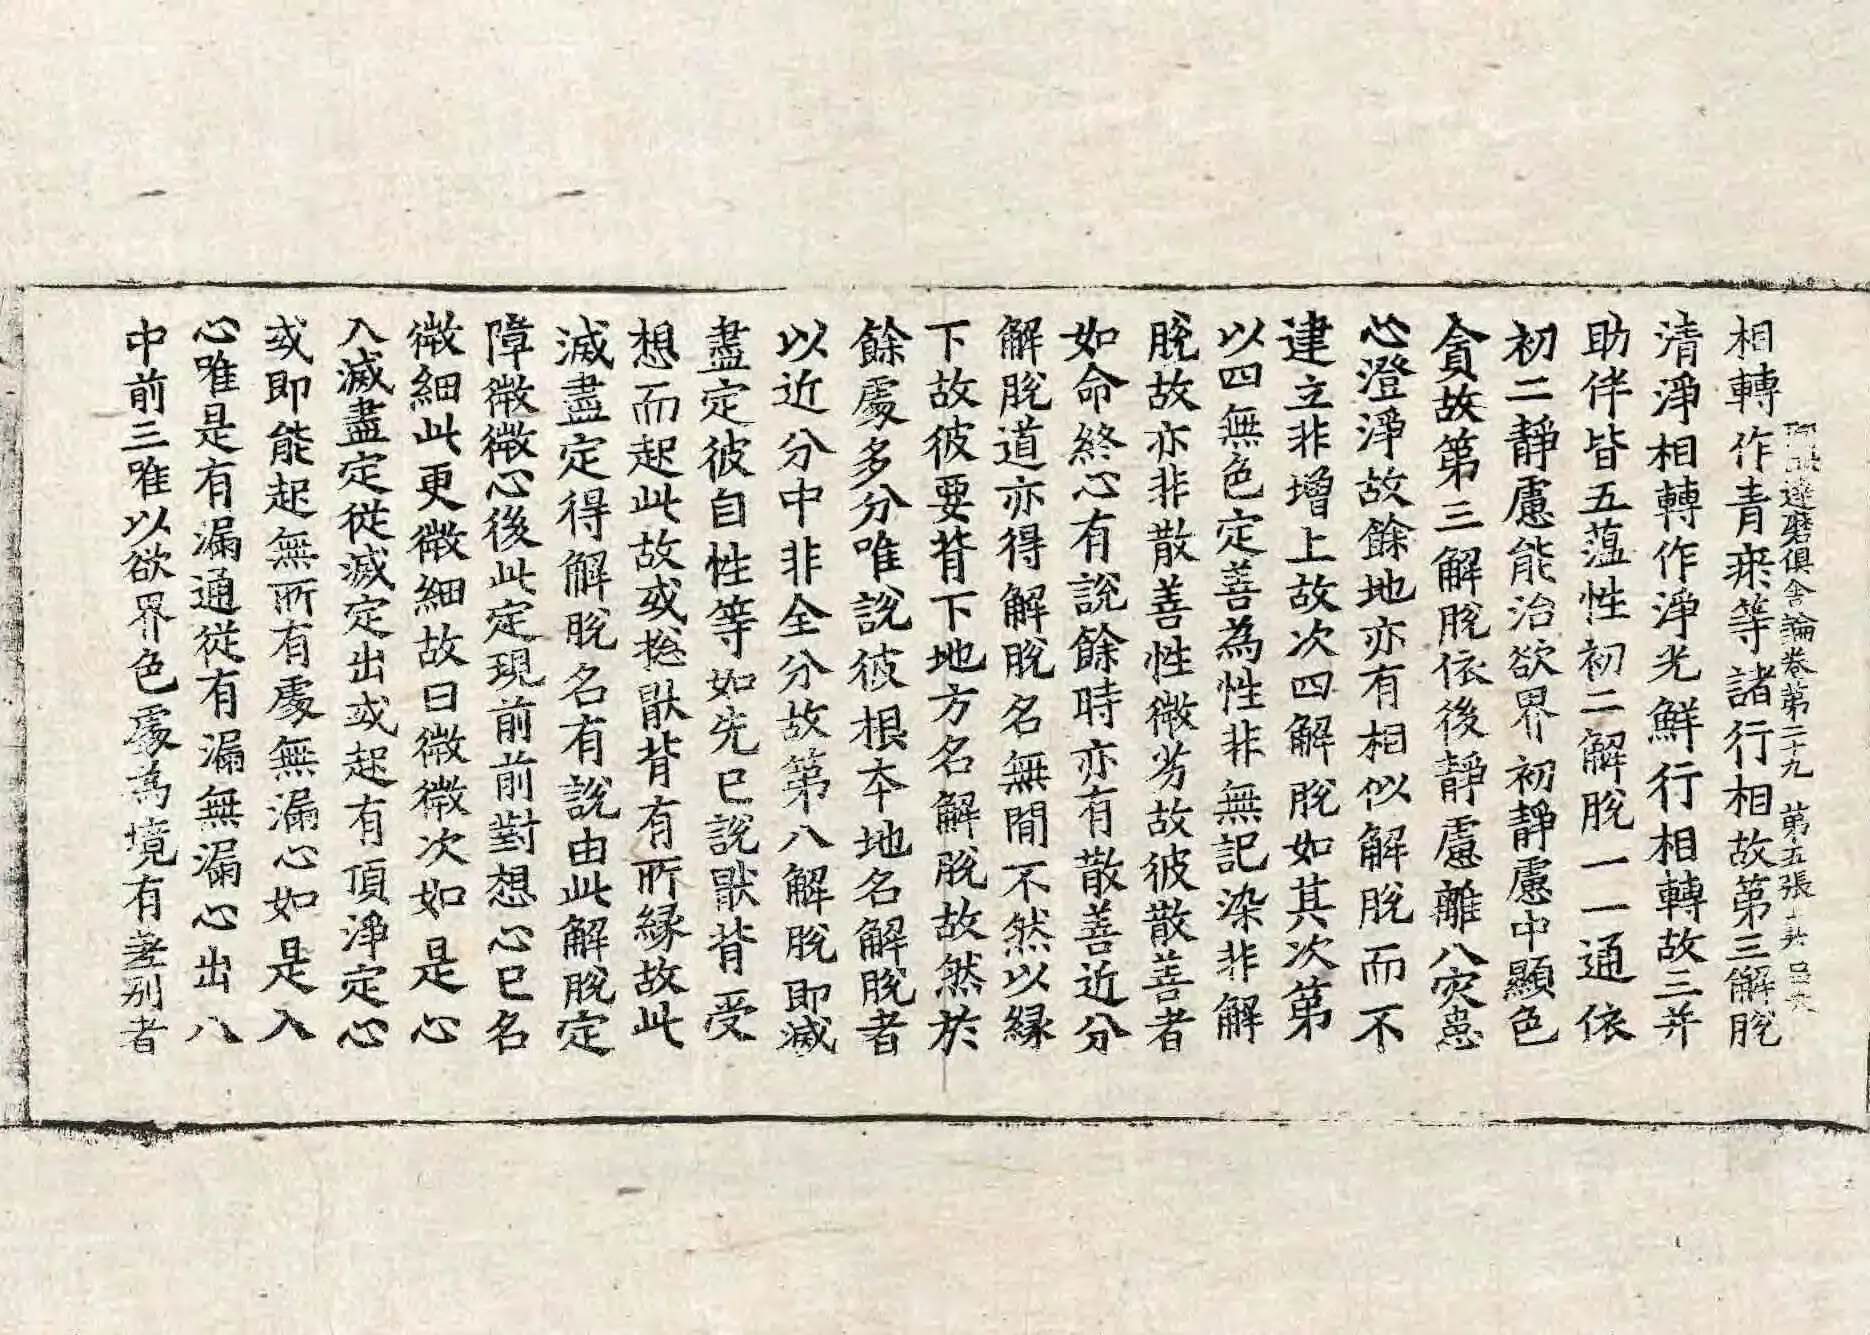 相轉作青瘀等諸行相故第三解脫
阿毗達磨俱舍論卷第二十九　第五張
清淨相轉作淨光鮮行相轉故三并
助伴皆五蕰性初二解脫一一通依
初二靜慮能治欲界初靜慮中顯色
貪故第三解脫依後靜慮離八灾患
心澄淨故餘地亦有相似解脫而不
建立非增上故次四解脫如其次第
以四無色定善為性非無記染非解
脫故亦非散善性微劣故彼散善者
如命終心有說餘時亦有散善近分
解脫道亦得解脫名無閒不然以縁
下故彼要背下地方名解脫故然於
餘處多分唯說彼根本地名解脫者
以近分中非全分故第八解脫即滅
盡定彼自性等如先已說猒背受
想而起此故或捴猒背有所縁故此
滅盡定得解脫名有說由此解脫定
障微微心後此定現前前對想心已名
微細此更微細故曰微微次如是心
入滅盡定從滅定出或起有頂淨定心
或即能起無所有處無漏心如是入
心唯是有漏通從有漏無漏心出八
中前三唯以欲界色處為境有差別者